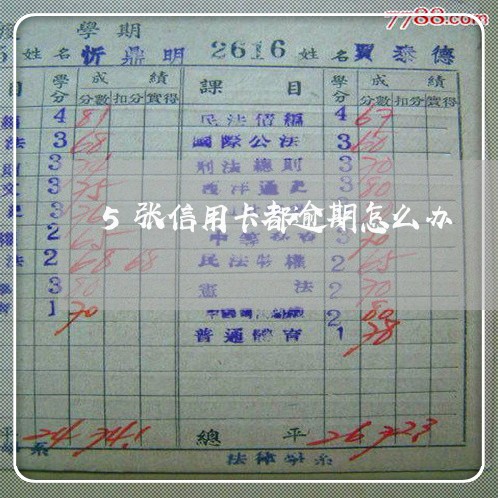 7788.com
學期
5 姓名 忻鼎明 2616 姓名 賈泰德
目 學分 成績 課目 學分 成績
分數 扣分 實得 分數 扣分 實得
4 81 民法債編 4 67
法 3 68 國際公法 3 60
則 3 刑法總則 3 70
3 75 西洋通史 3 80
5 张信用卡都逾期怎么办
2 3 70
法 2 68 68 民法物權 2 65
3 80 憲法 2 70
1 70 2 80
普通體育 1 78
平 24 74.1 總平 26 72.3
系 法律學系